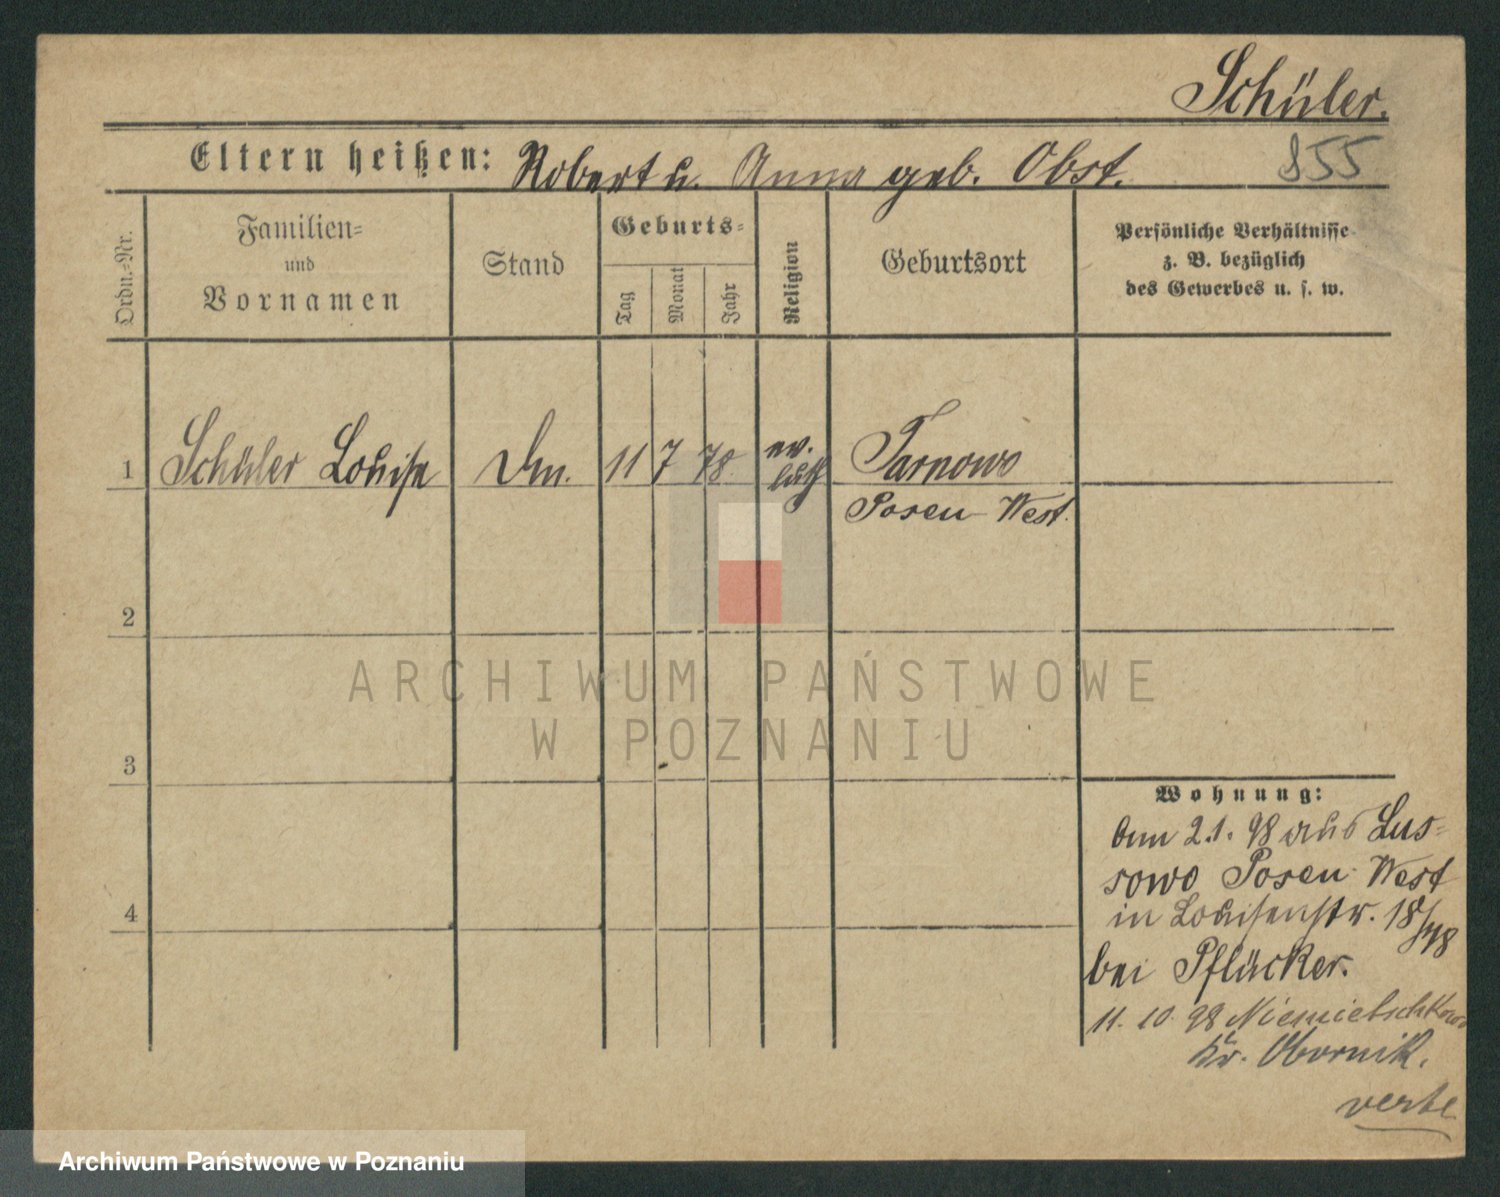 Schüler.
Eltern heißen: Robert u. Anna geb. Obst.
855
Ordn.=Nr.
Familien=
und
Vornamen
Stand
Geburts=
Tag
Monat
Jahr
Religion
Geburtsort
Persönliche Verhältnisse
z. B. bezüglich
des Gewerbes u. s. w.
1 Schüler Louise 11 7 78 ev. luth Tarnowo
Posen West.
2
3
4
Wohnung:
2.1.98 aus Lus=
sowo Posen West
in Louisenstr. 18
bei Pflücker.
11. 10. 98 Niemietschkowo
Kr. Obornik.
verte
ARCHIWUM PAŃSTWOWE
W POZNANIU
Archiwum Państwowe w Poznaniu